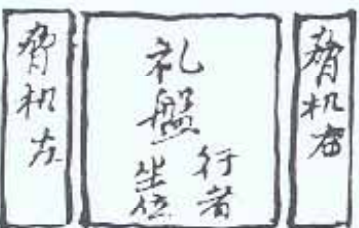 脅机右
礼盤
行者
坐位
脅机左